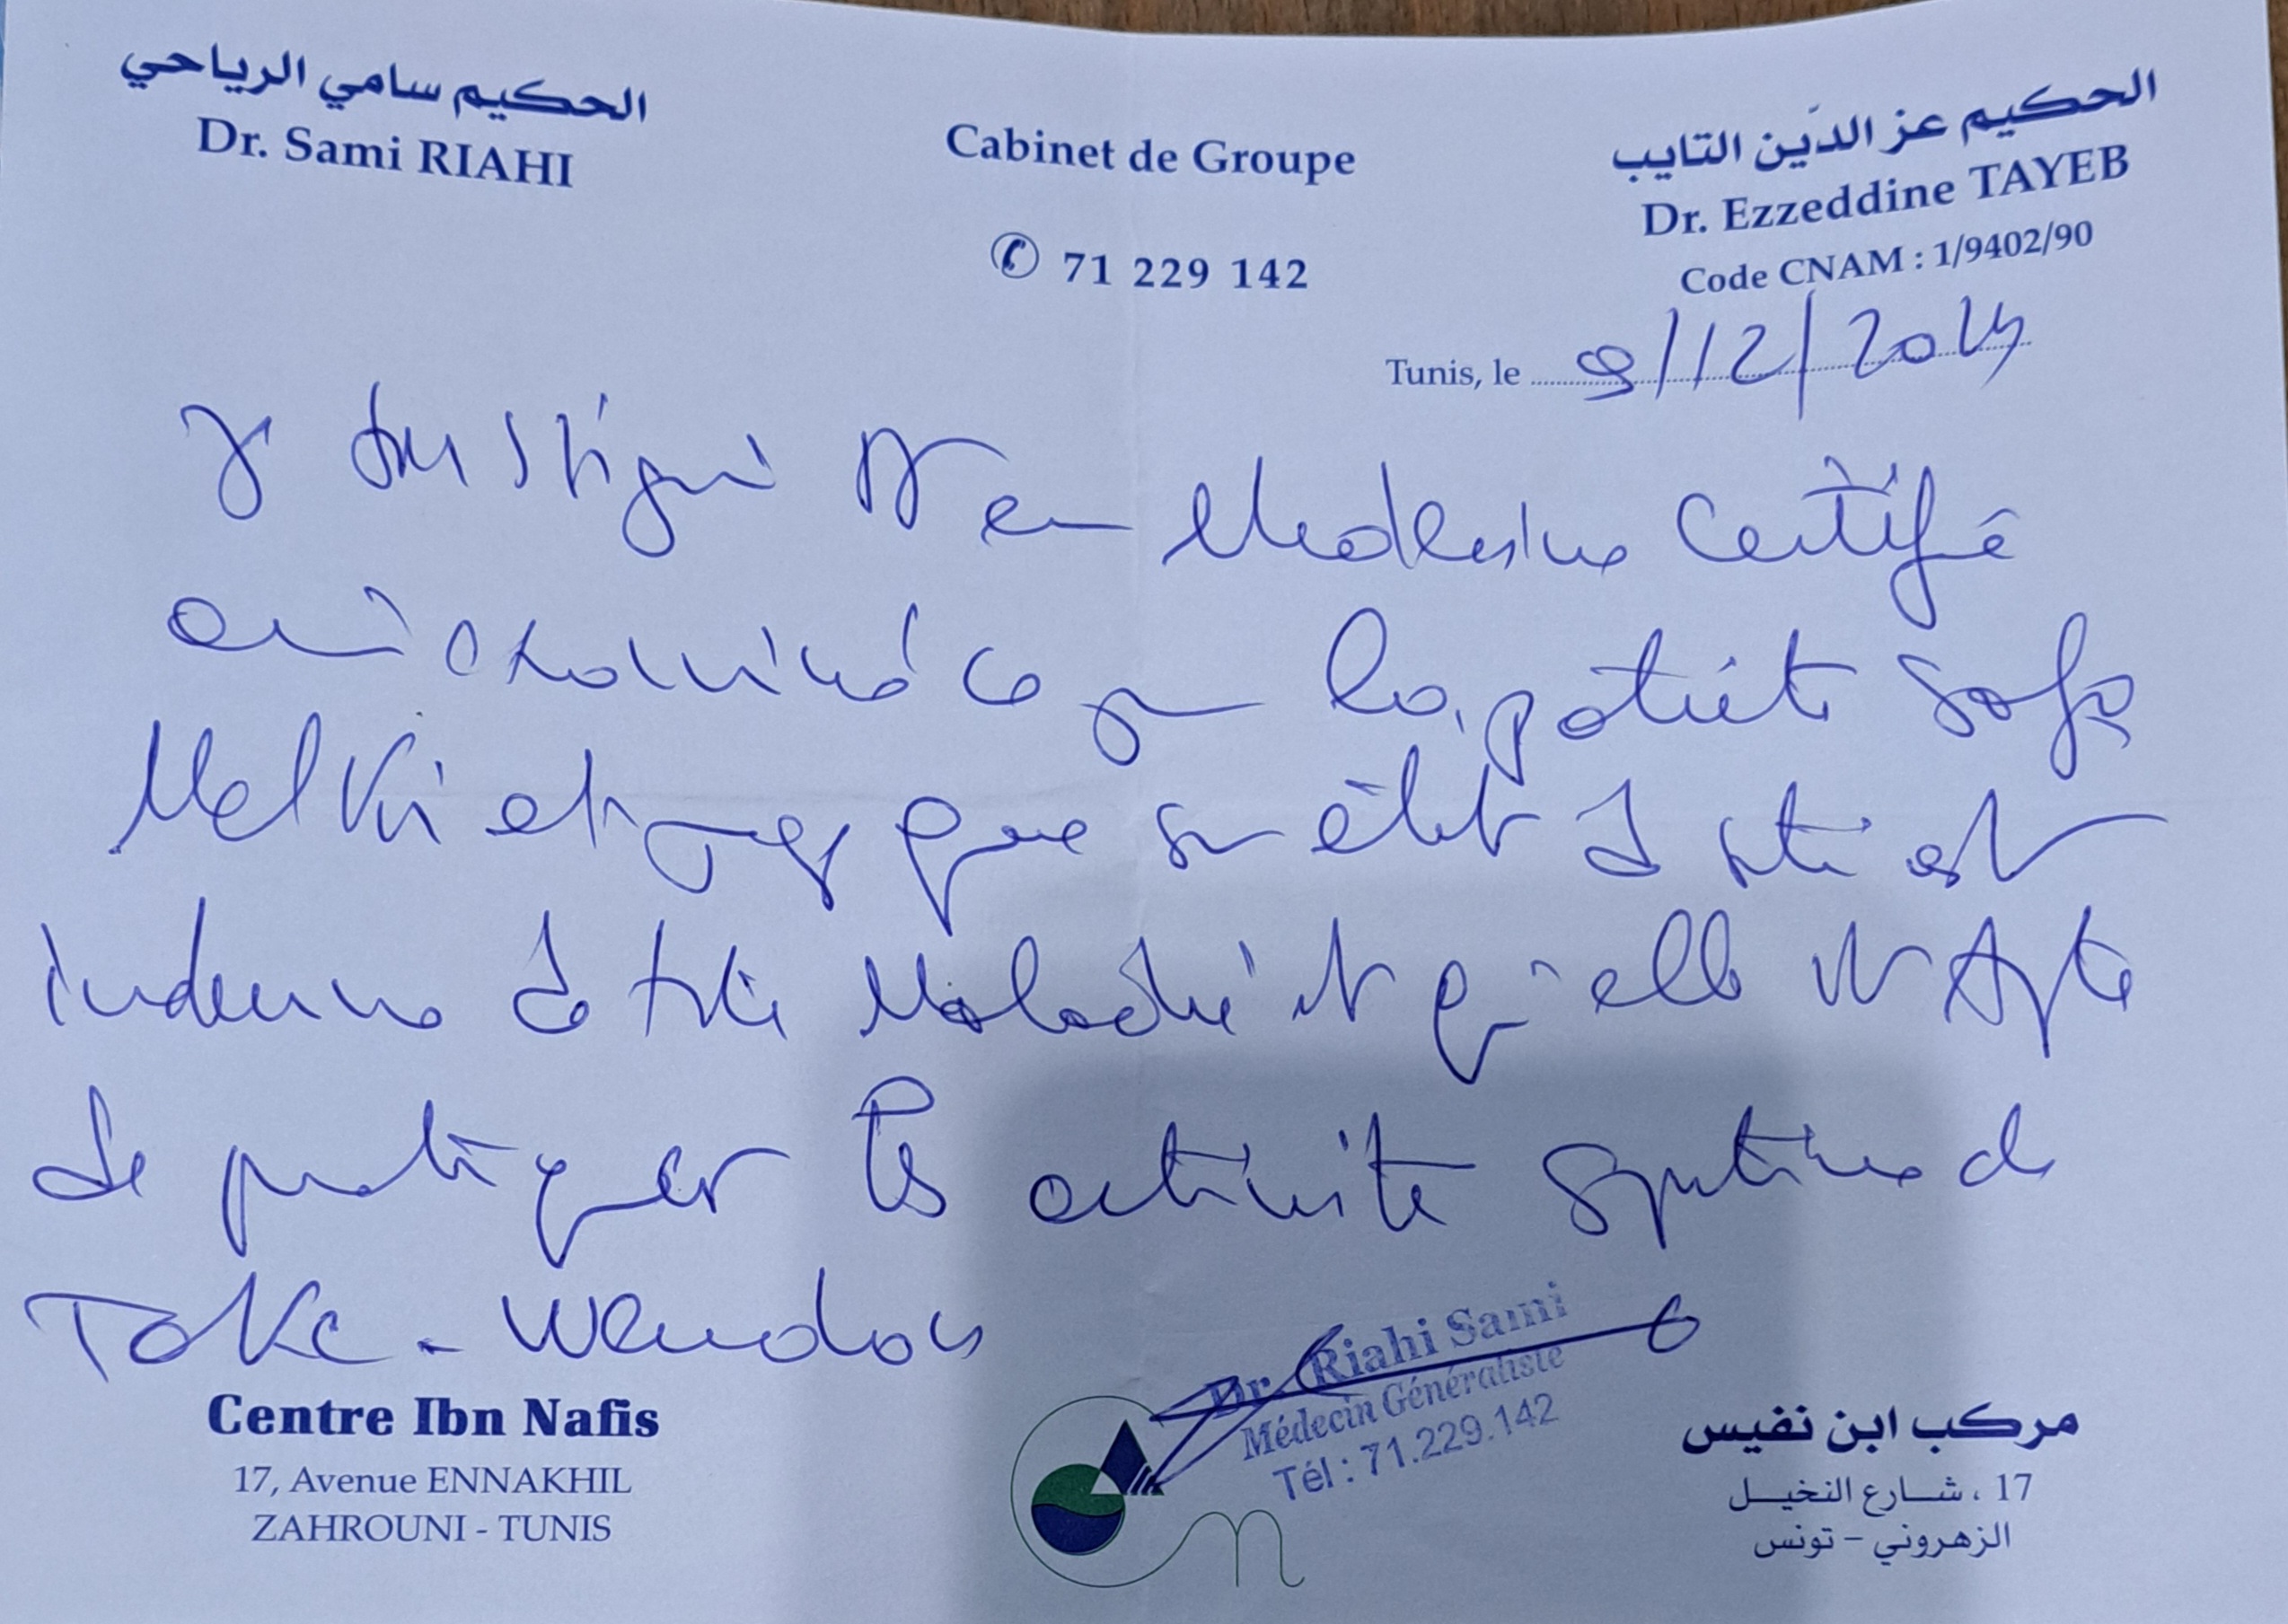 الحكيم سامي الرياحي
Dr. Sami RIAHI
Cabinet de Groupe
✆ 71 229 142
الحكيم عز الدّين التايب
Dr. Ezzeddine TAYEB
Code CNAM : 1/9402/90
Tunis, le 9/12/2024
Je soussigné Dr en Medecine certifie
avoir examiné ce jour la patiente Safa
Melki et que son état de santé est
indemne de toute Maladie et qu'elle est Apte
de pratiquer les activité sportives de
Toke-Wendou
Dr. Riahi Sami
Médecin Généraliste
Tél : 71.229.142
Centre Ibn Nafis
17, Avenue ENNAKHIL
ZAHROUNI - TUNIS
مركب ابن نفيس
17 ، شارع النخيل
الزهروني - تونس